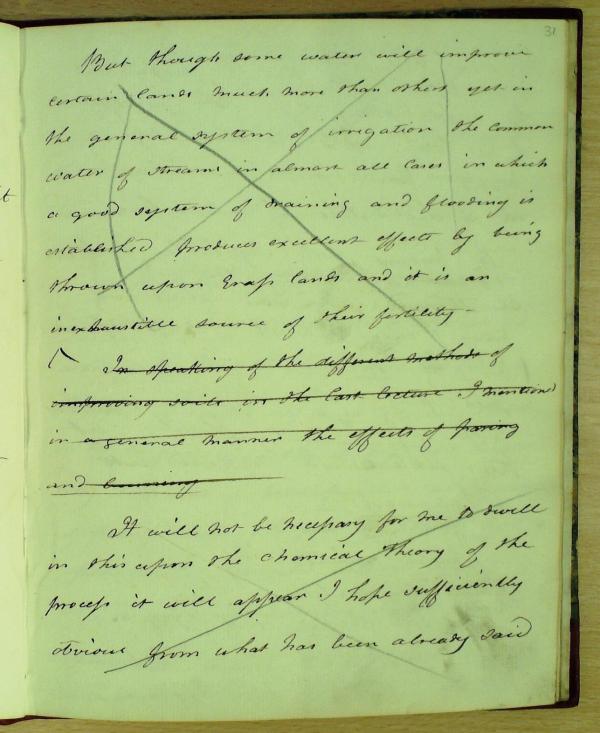 31
But though some water will improve
certain lands much more than others yet in
the general system of irrigation the common
water of streams in almost all cases in which
a good system of draining and flooding is
established produces excellent effects by being
thrown upon Grass lands and it is an
inexhaustible source of their fertility -
In speaking of the different methods of
improving soils in the last lecture I mentioned
in a general manner the effects of paring
and burning
It will not be necessary for me to dwell
in this upon the Chemical theory of the
process it will appear I hope sufficiently
obvious from what has been already said